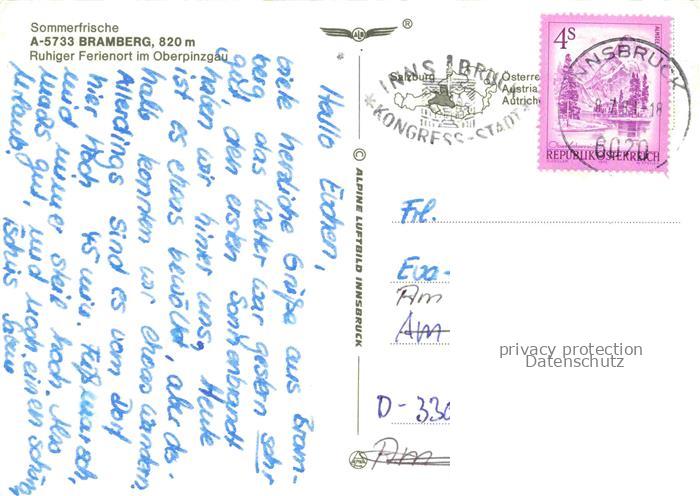 Sommerfrische
A-5733 BRAMBERG, 820 m
Ruhiger Ferienort im Oberpinzgau
ALB
®
Salzburg
Österre
Austria
Autrich
INNSBRUCK
KONGRESS-STADT
4S
REPUBLIK ÖSTERREICH
INNSBRUCK
-18
6020
© ALPINE LUFTBILD INNSBRUCK
Hallo
viele herzliche Grüße aus Bram-
berg, das Wetter war gestern sehr
gut, den ersten Sonnenbrand
haben wir hinter uns. Heute
ist es etwas bewölkt, aber des-
halb konnten wir etwas wandern.
Allerdings sind es vom Dorf
hier hoch 45 min. Fußmarsch,
und immer steil hoch. Also
machs gut, und noch einen schönen
Urlaub.
Tschüs
Frl.
Eva-
Am
Am
D-330
Am
privacy protection
Datenschutz